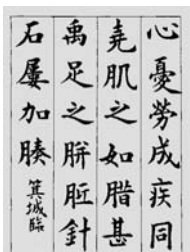 心憂勞成疾同
堯肌之如腊甚
禹足之胼胝針
石屢加腠
箕城臨